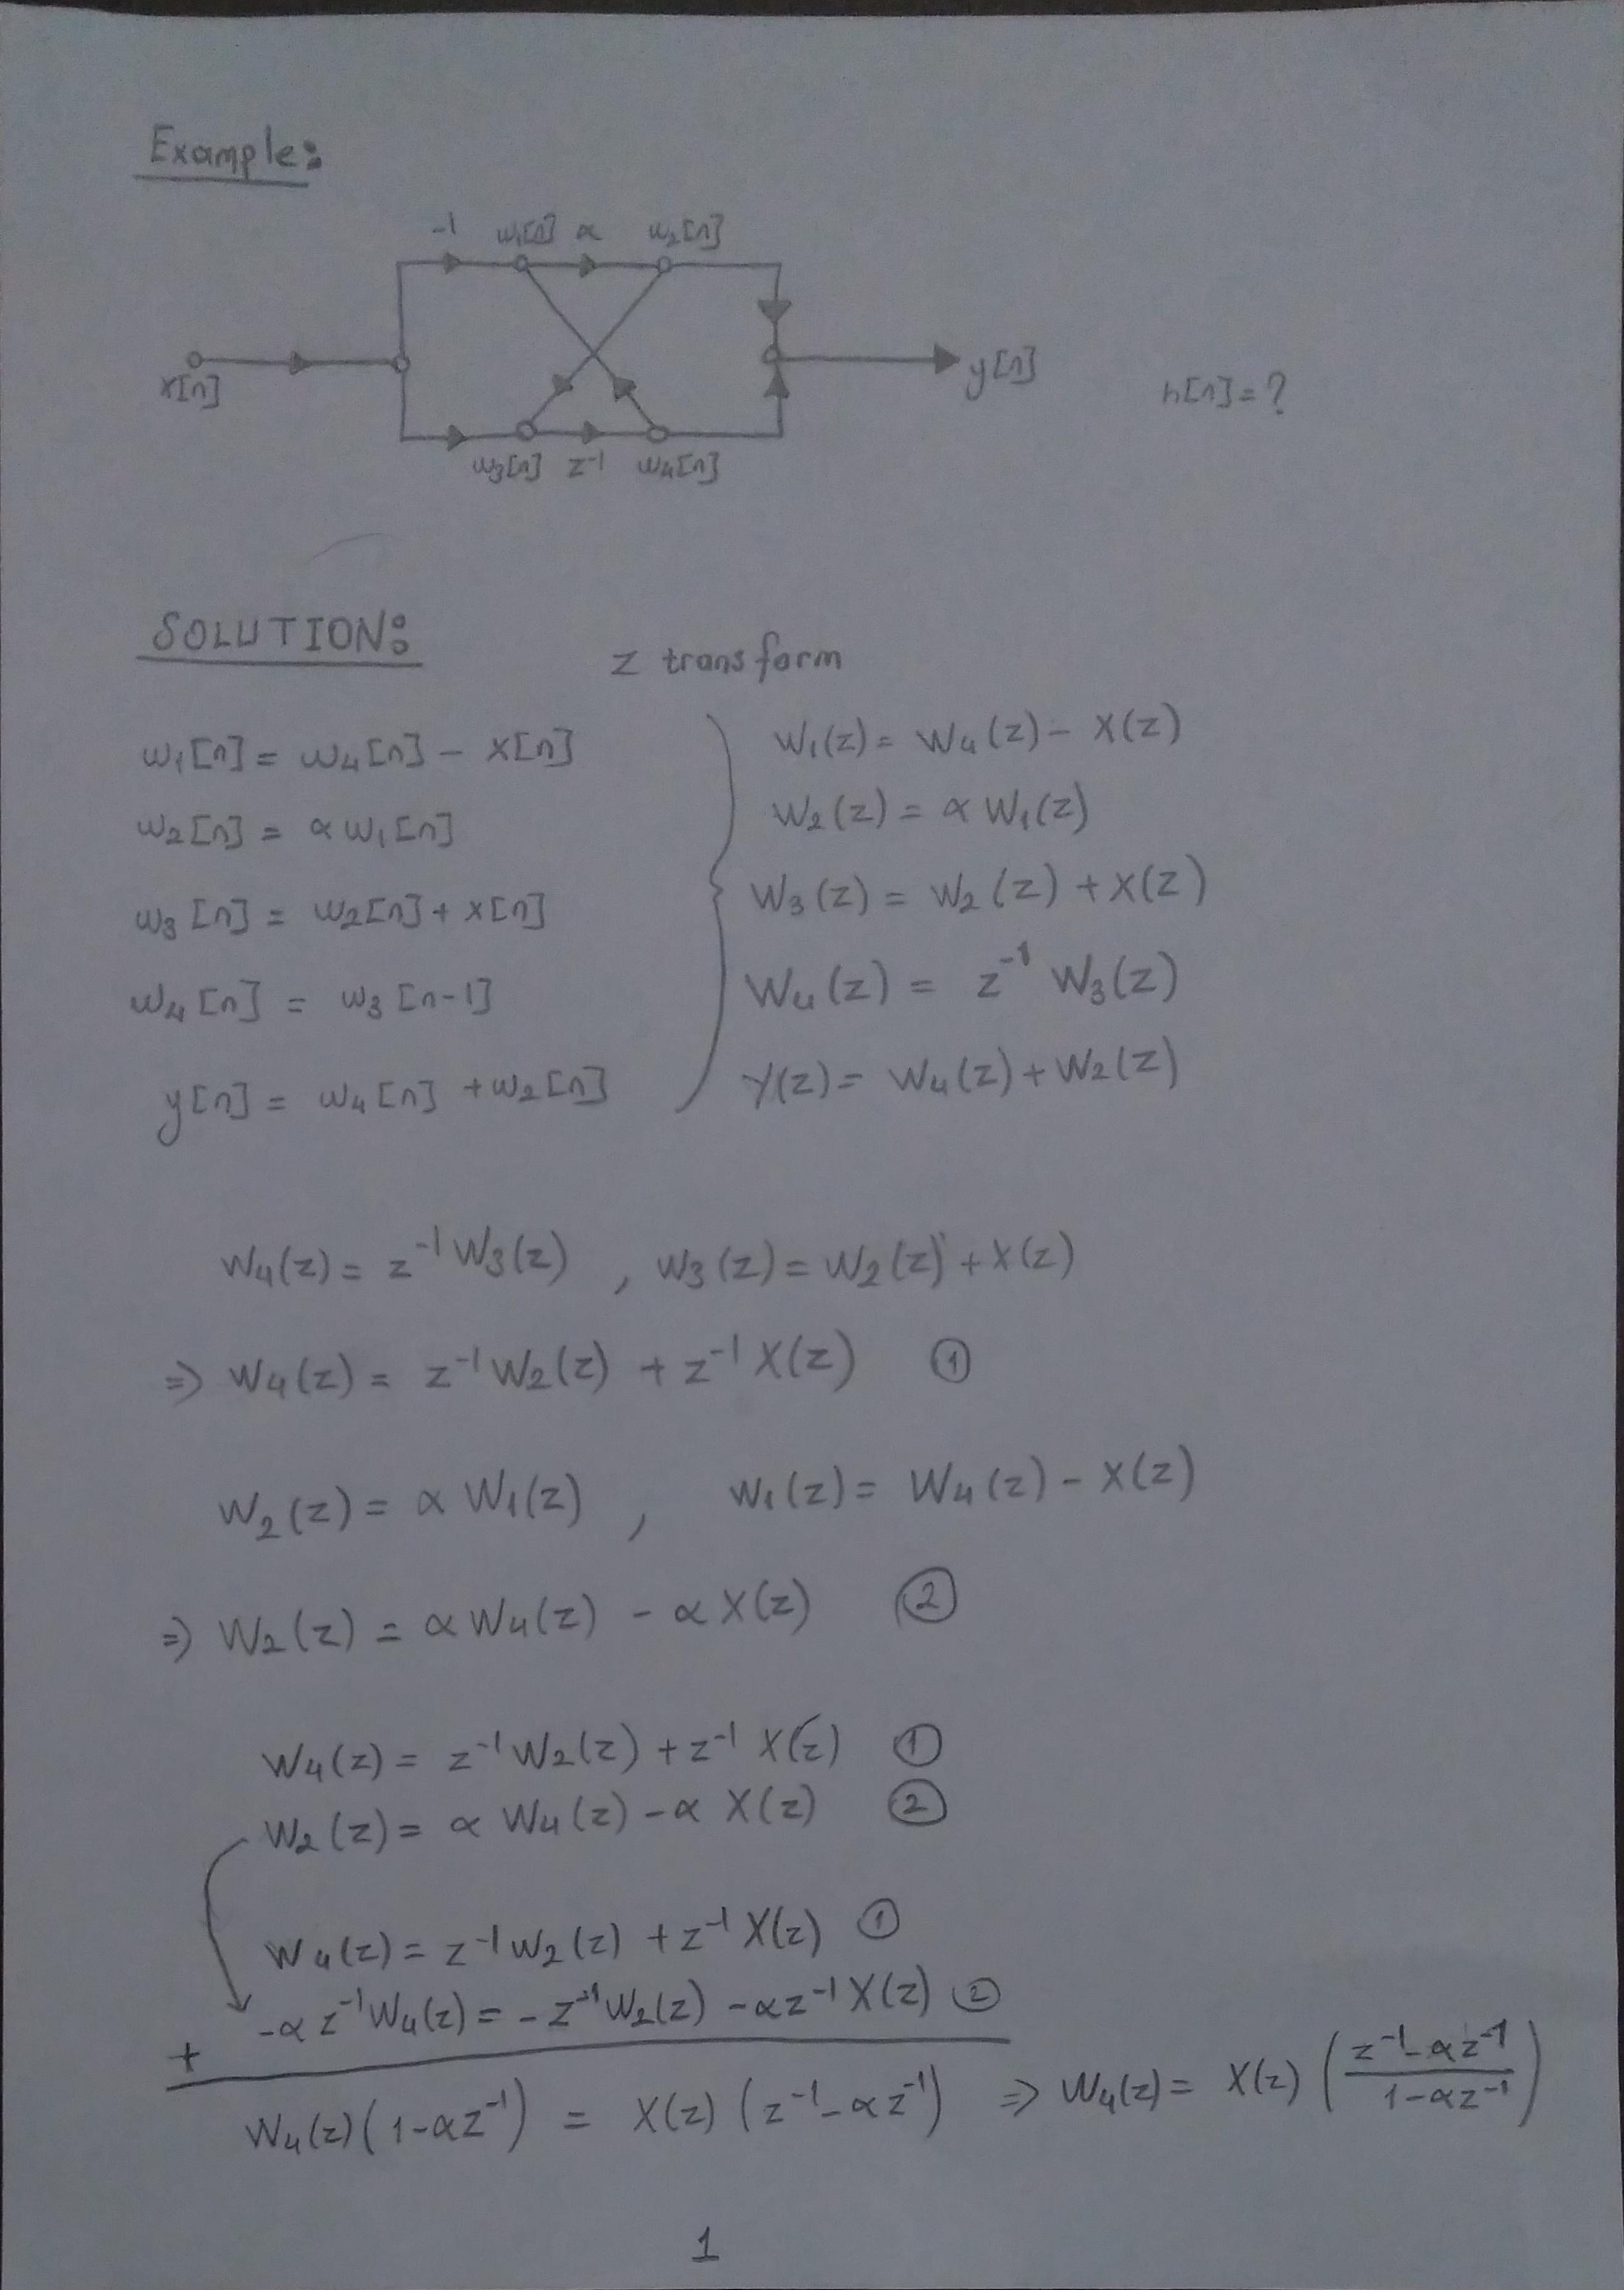 Example:
-1 w₁[n] α w₂[n]
x[n] y[n] h[n]=?
w₃[n] z⁻¹ w₄[n]
SOLUTION:
z transform
w₁[n] = w₄[n] - x[n] W₁(z) = W₄(z) - X(z)
w₂[n] = α w₁[n] W₂(z) = α W₁(z)
w₃[n] = w₂[n] + x[n] W₃(z) = W₂(z) + X(z)
w₄[n] = w₃[n-1] W₄(z) = z⁻¹ W₃(z)
y[n] = w₄[n] + w₂[n] Y(z) = W₄(z) + W₂(z)
W₄(z) = z⁻¹ W₃(z) , W₃(z) = W₂(z) + X(z)
⇒ W₄(z) = z⁻¹ W₂(z) + z⁻¹ X(z) ①
W₂(z) = α W₁(z) , W₁(z) = W₄(z) - X(z)
⇒ W₂(z) = α W₄(z) - α X(z) ②
W₄(z) = z⁻¹ W₂(z) + z⁻¹ X(z) ①
W₂(z) = α W₄(z) - α X(z) ②
W₄(z) = z⁻¹ W₂(z) + z⁻¹ X(z) ①
-α z⁻¹ W₄(z) = - z⁻¹ W₂(z) - α z⁻¹ X(z) ②
+
W₄(z) (1 - α z⁻¹) = X(z) (z⁻¹ - α z⁻¹) ⇒ W₄(z) = X(z) ((z⁻¹ - α z⁻¹)/(1 - α z⁻¹))
1